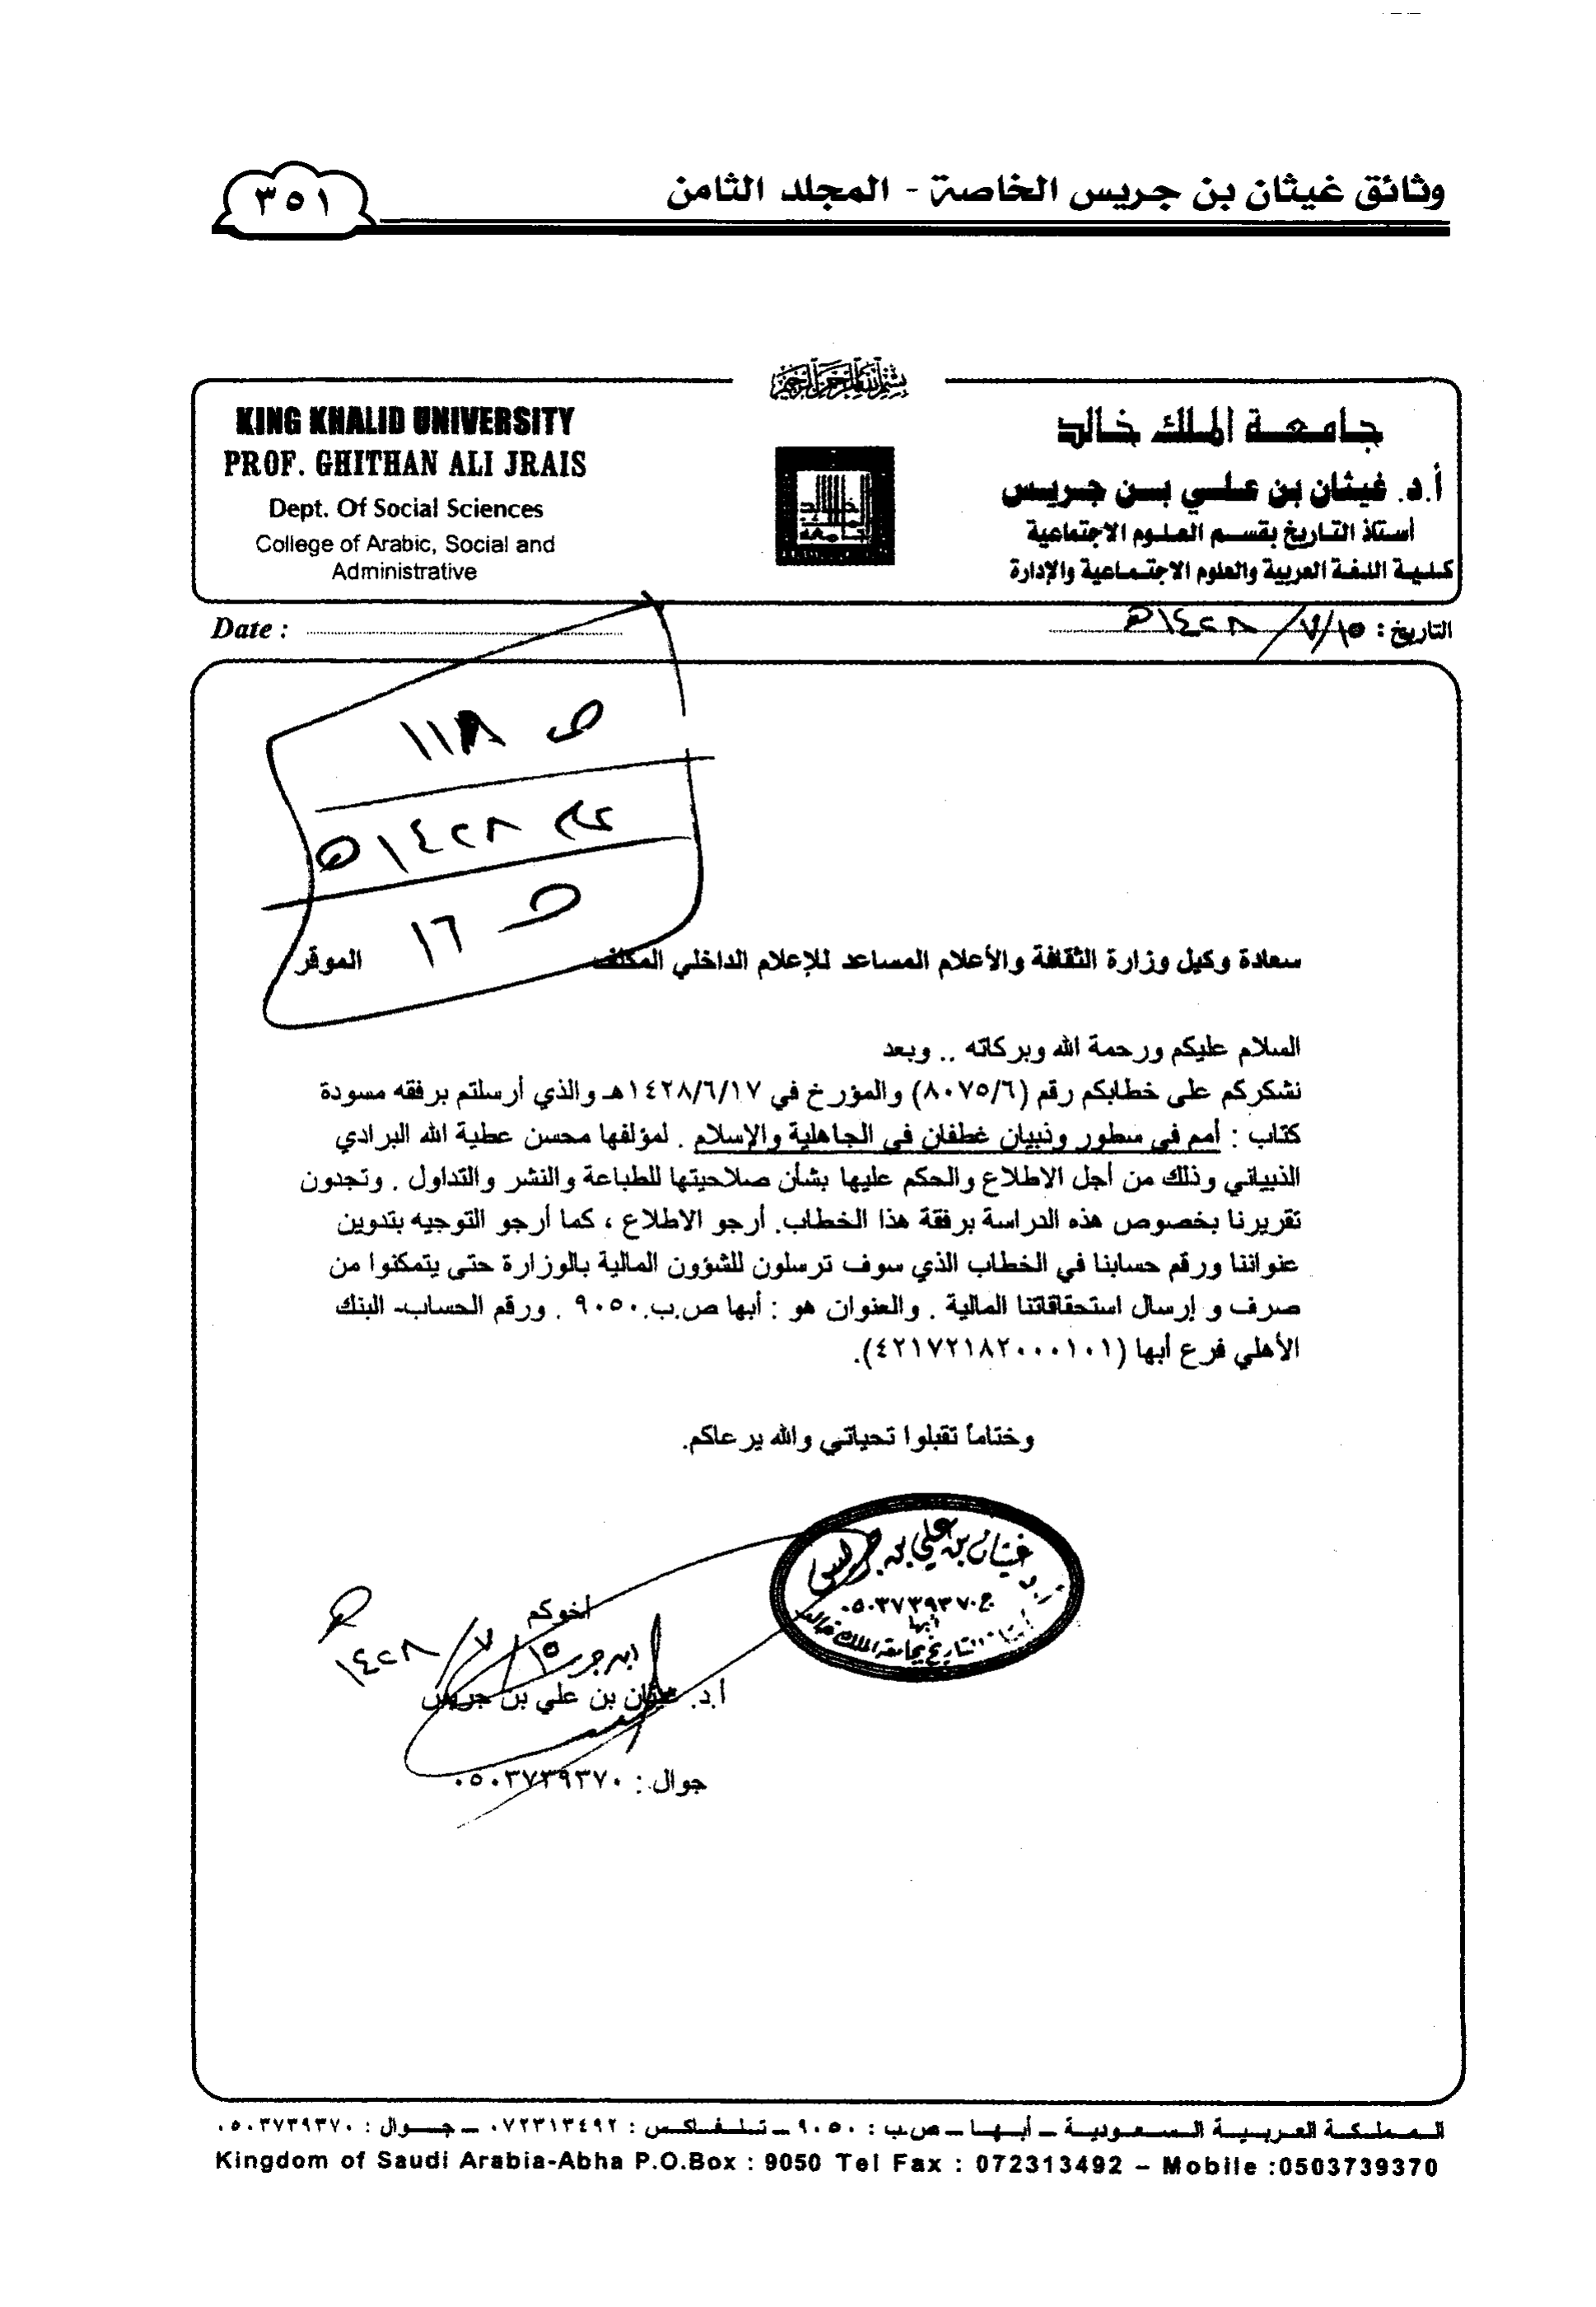 وثائق غيثان بن جريس الخاصة - المجلد الثامن
٣٥١
بسم الله الرحمن الرحيم
جامعة الملك خالد
أ.د. غيثان بن علي بن جريس
أستاذ التاريخ بقسم العلوم الاجتماعية
كلية اللغة العربية والعلوم الاجتماعية والإدارة
KING KHALID UNIVERSITY
PROF. GHITHAN ALI JRAIS
Dept. Of Social Sciences
College of Arabic, Social and
Administrative
التاريخ : ١٥/٧/١٤٢٨هـ
Date :
ص ١١٨
عام ١٤٢٨هـ
ص ١٦
سعادة وكيل وزارة الثقافة والأعلام المساعد للإعلام الداخلي المكلف الموقر
السلام عليكم ورحمة الله وبركاته .. وبعد
نشكركم على خطابكم رقم (٨٠٧٥/٦) والمؤرخ في ١٤٢٨/٦/١٧هـ والذي أرسلتم برفقه مسودة
كتاب : أمم في سطور وذبيان غطفان في الجاهلية والإسلام . لمؤلفها محسن عطية الله البرادي
الذبياني وذلك من أجل الاطلاع والحكم عليها بشأن صلاحيتها للطباعة والنشر والتداول . وتجدون
تقريرنا بخصوص هذه الدراسة برفقة هذا الخطاب. أرجو الاطلاع ، كما أرجو التوجيه بتدوين
عنواننا ورقم حسابنا في الخطاب الذي سوف ترسلون للشؤون المالية بالوزارة حتى يتمكنوا من
صرف و إرسال استحقاقاتنا المالية . والعنوان هو : أبها ص.ب. ٩٠٥٠ . ورقم الحساب- البنك
الأهلي فرع أبها (٤٢١٧٢١٨٢٠٠٠١٠١).
وختاماً تقبلوا تحياتي والله يرعاكم.
غيثان بن علي بن جريس
ج ٠٥٠٣٧٣٩٣٧٠
أبها
أستاذ التاريخ بجامعة الملك خالد
أخوكم
ابن جريس
١٥/٧/١٤٢٨هـ
أ.د. غيثان بن علي بن جريس
جوال : ٠٥٠٣٧٣٩٣٧٠
المملكة العربية السعودية – أبها – ص.ب : ٩٠٥٠ – تلفاكس : ٠٧٢٣١٣٤٩٢ – جوال : ٠٥٠٣٧٣٩٣٧٠
Kingdom of Saudi Arabia-Abha P.O.Box : 9050 Tel Fax : 072313492 – Mobile :0503739370